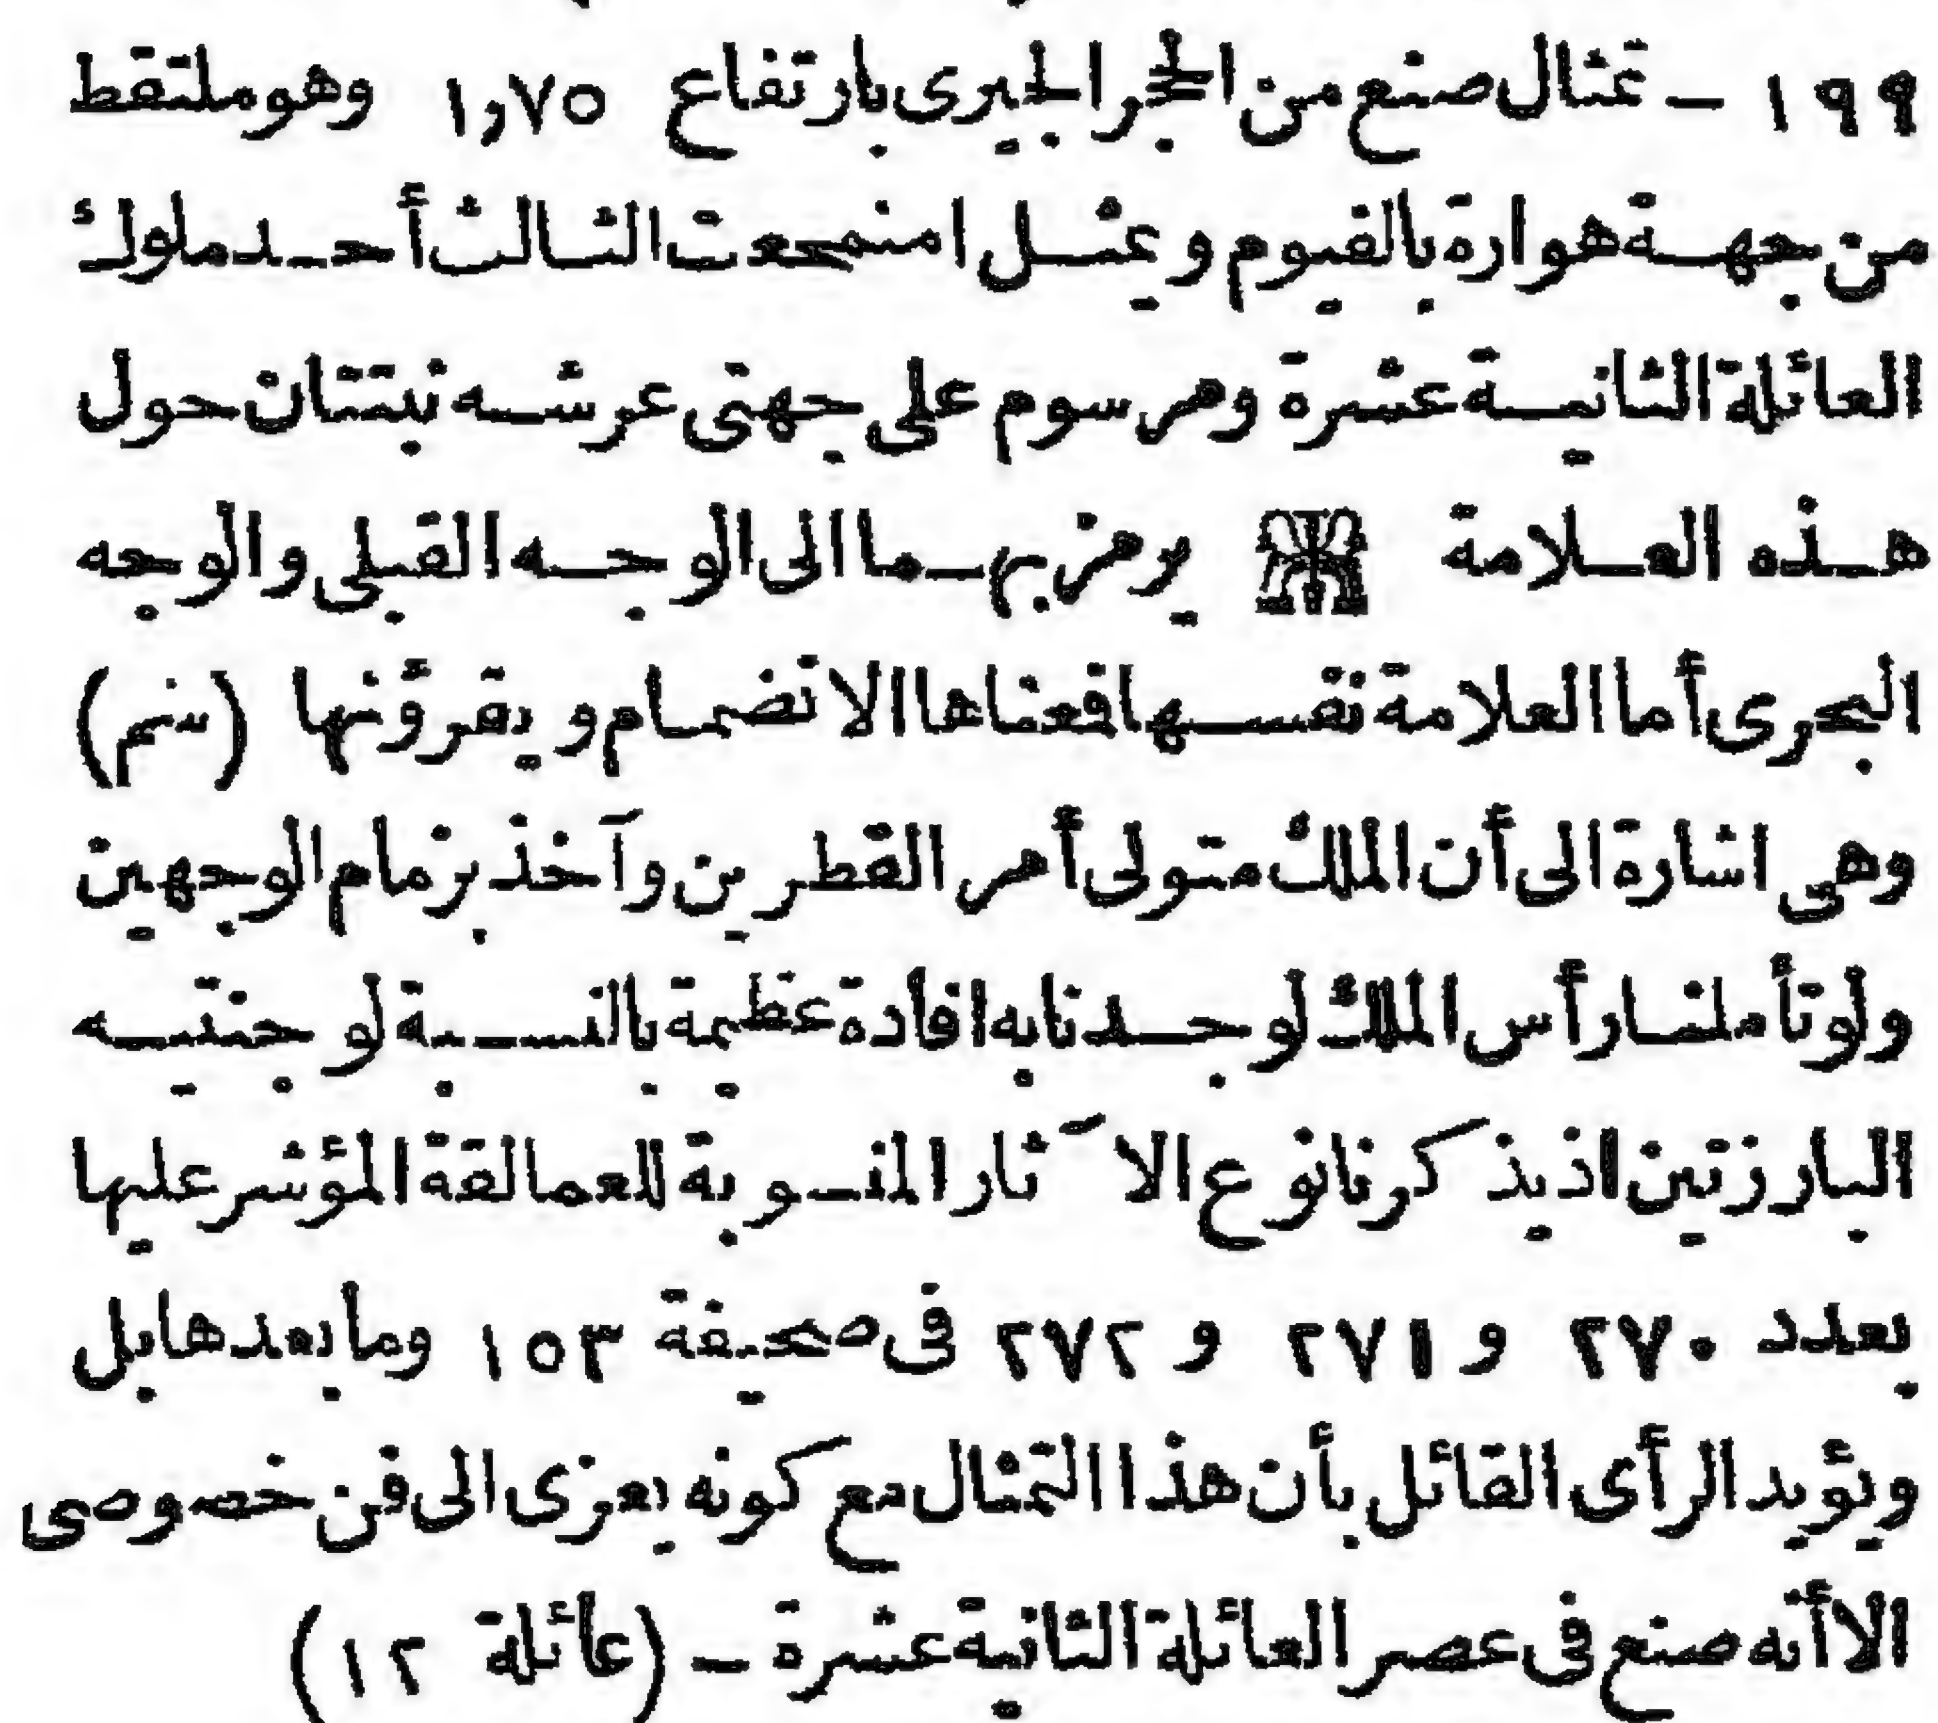 ١٩٩ ـ تمثال صنع من الحجر الجيرى بارتفاع ١,٧٥ وهو ملتقط
من جهة هوارة بالفيوم ويمثل امنمحعت الثالث أحد ملوك
العائلة الثانية عشرة ومرسوم على جهتى عرشه نبتتان حول
هذه العلامة يرمز بهما الى الوجه القبلى والوجه
البحرى أما العلامة نفسها فمعناها الانضمام ويقرؤنها (سم)
وهى اشارة الى أن الملك متولى أمر القطرين وآخذ بزمام الوجهين
ولو تأملنا رأس الملك لوجدنا به افادة عظيمة بالنسبة لوجنتيه
البارزتين اذ يذكرنا نوع الآثار المنسوبة للعمالقة المؤشر عليها
بعدد ٢٧٠ و ٢٧١ و ٢٧٢ فى صحيفة ١٥٣ وما بعدها بل
ويؤيد الرأى القائل بأن هذا التمثال مع كونه يعزى الى فن خصوصى
الا أنه صنع فى عصر العائلة الثانية عشرة ـ (عائلة ١٢)